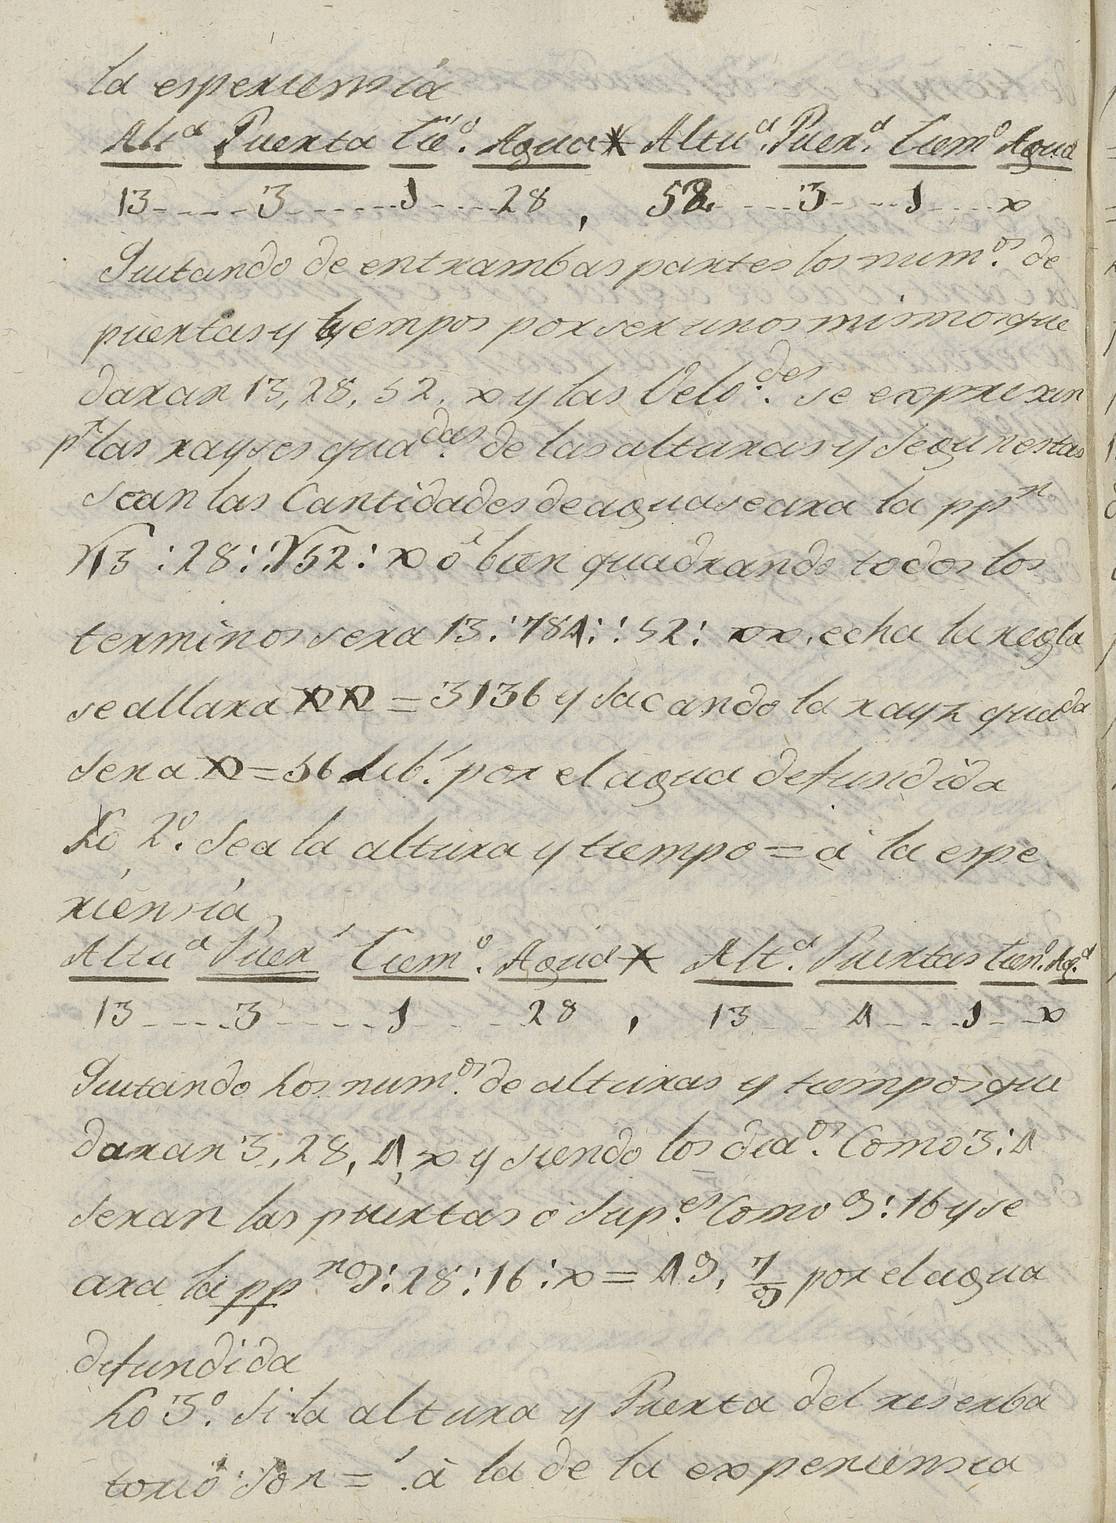 la esperiensia
Altᵈ Puerta Tieº. Agua * Altuᵈ. Puerᵗ. Tiemº Agua
13 - - - - 3 - - - - - 1 - - - - 28 , 52. - - - 3 - - - 1 - - - x
Quitando de entrambas partes los numᵒˢ. de
puertas y tyempos por ser unos mismos que
daran 13, 28, 52, x y las Veloᵈᵉˢ. se exprexan
pʳ las rayses quaᵈᵃˢ. de las alturas y segun estas
sean las Cantidades de agua seara la ppⁿ
√13 : 28 :: √52 : x ó bien quadrando todos los
terminos sera 13 : 784 :: 52 : xx. echa la regla
se allara xx = 3136 y sacando la rayz quaᵈᵃ
sera x = 56 Lib.ˢ por el agua defundida
Lo 2º. Sea la altura y tiempo = á la espe
riensia
Altuᵈ Puerˢ Tiemº. Agua * Altᵈ. Puertas Tienº. Agᵃ
13 - - - 3 - - - - 1 - - - 28 , 13 - - 4 - - - 1 - - x
Quitando los numᵒˢ. de alturas y tiempos que
daran 3, 28, 4, x y siendo los diaᵒˢ. Como 3 : 4
seran las puertas o Supᵉˢ. Como 9 : 16 y se
ara la ppⁿ 9 : 28 : 16 : x = 49, 7/9 por el agua
defundida
Lo 3º. Si la altura y Puerta del reserba
torio son = á la de la experiensia